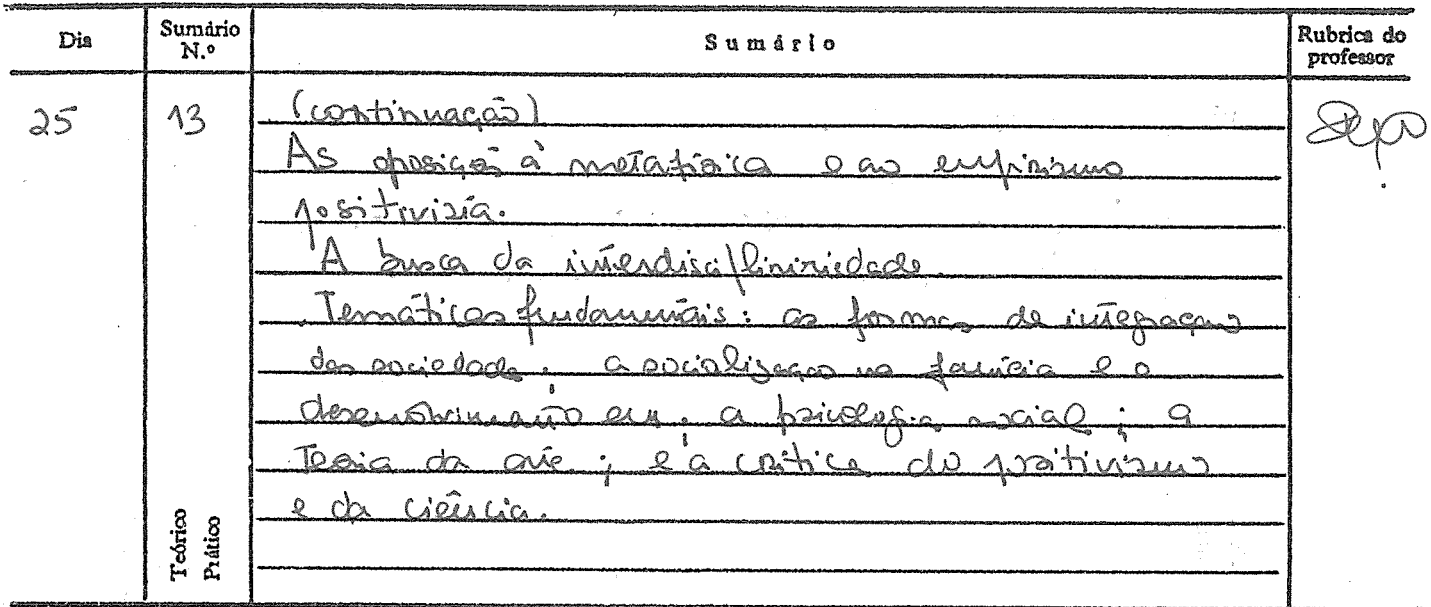 Dia
Sumário N.º
Sumário
Rubrica do professor
25
13
(continuação)
As oposição à metafísica e ao empirismo
positivista.
A busca da interdisciplinariedade
Temáticas fundamentais: as formas de integração
das sociedade; a socialização na família e o
desenvolvimento ; a psicologia social; a
Teoria da arte; e a crítica do positivismo
e da ciência.
Teórico
Prático